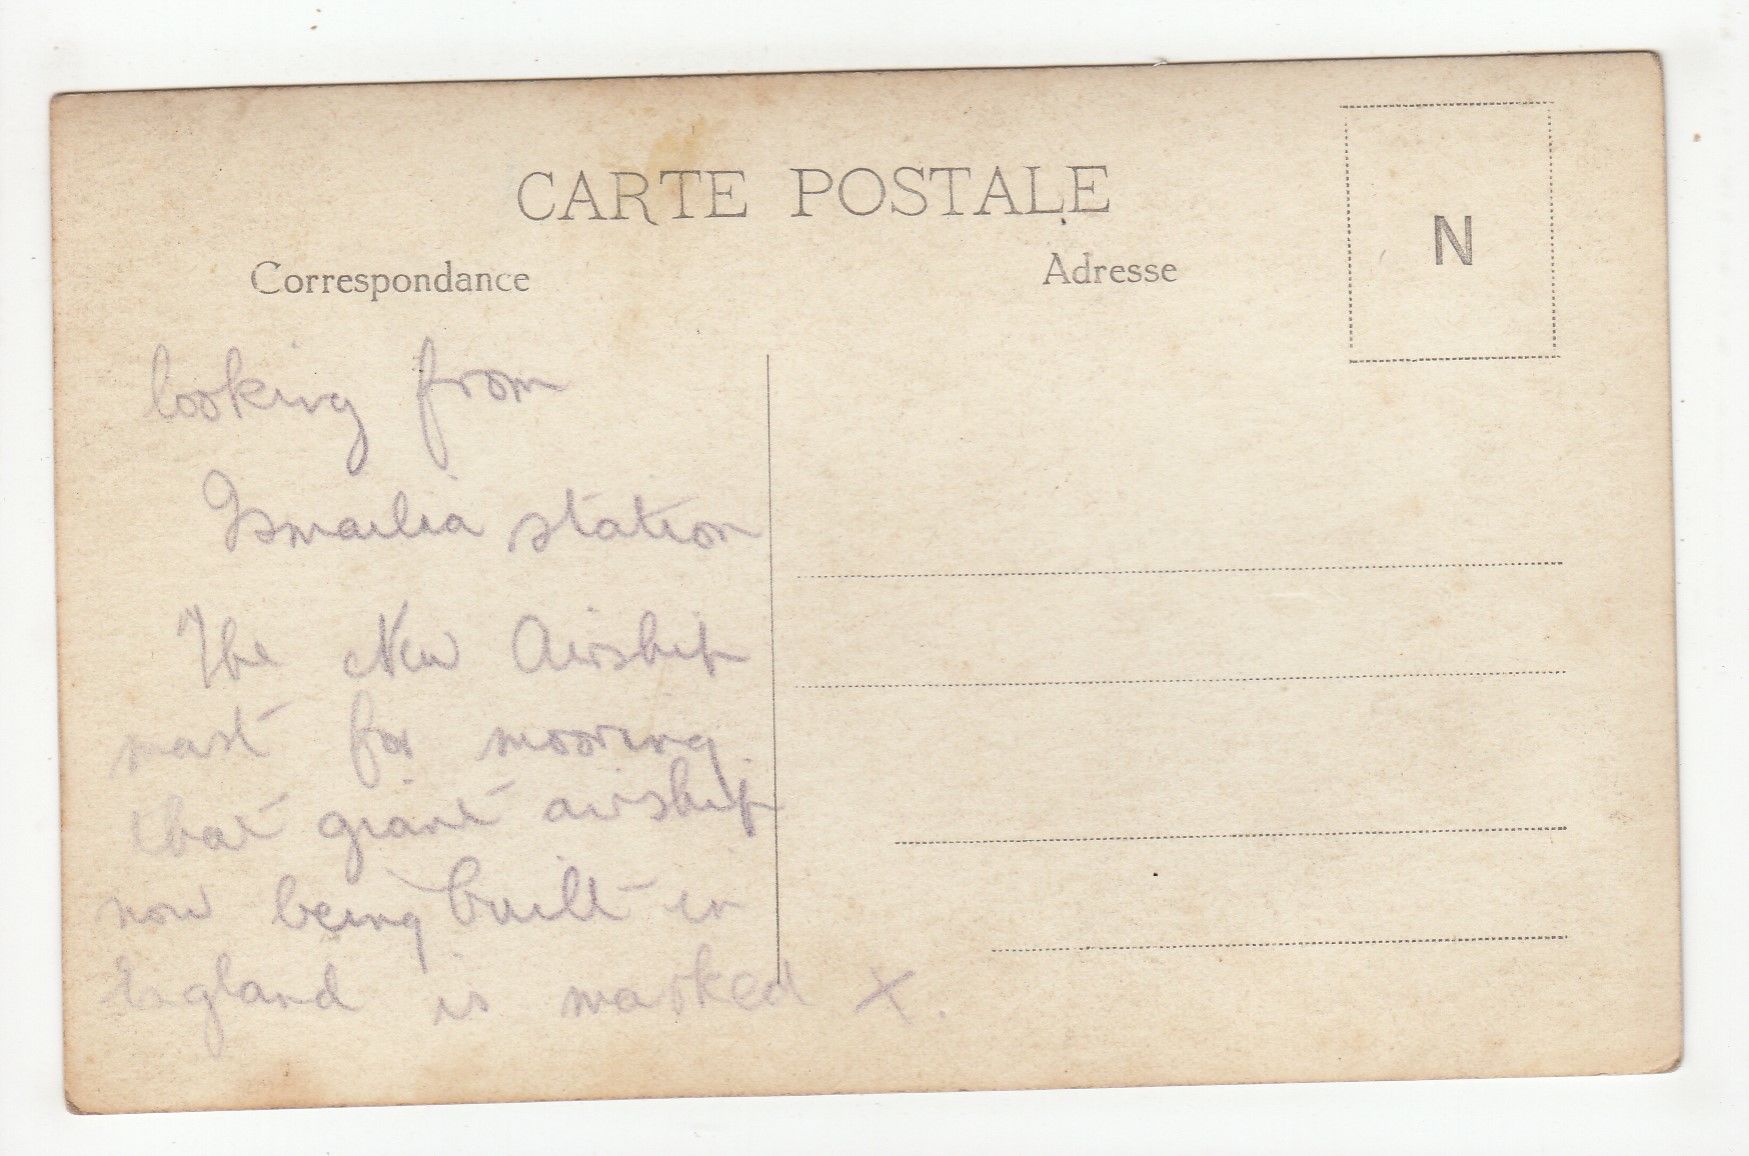 CARTE POSTALE
Correspondance
Adresse
N
looking from
Ismailia station
The New Airship
mast for mooring
that giant airship
now being built in
England is marked X.